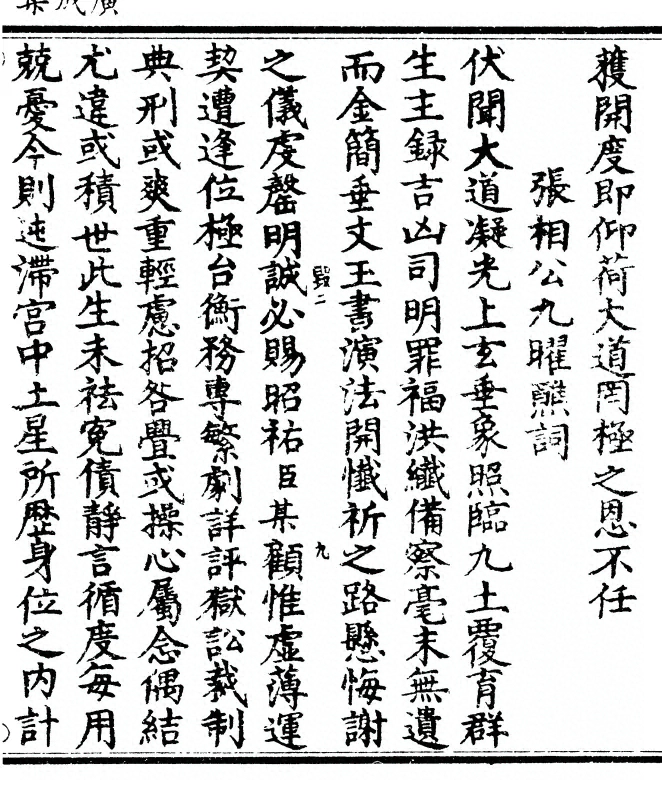 獲開度即仰荷大道罔極之恩不任
張相公九曜醮詞
伏聞大道凝光上玄垂象照臨九土覆育群
生主録吉凶司明罪福洪纎備察毫末無遺
而金簡垂文玉書演法開懺祈之路懸悔謝
之儀虔罄明誠必賜昭祐臣某顧惟虛薄運
毀二
九
契遭逢位極台衡務專繁劇詳評獄訟裁制
典刑或爽重輕慮招咎釁或操心屬念偶結
尤違或積世此生未祛寃債靜言循度每用
兢憂今則迍滯宫中土星所歷身位之内計